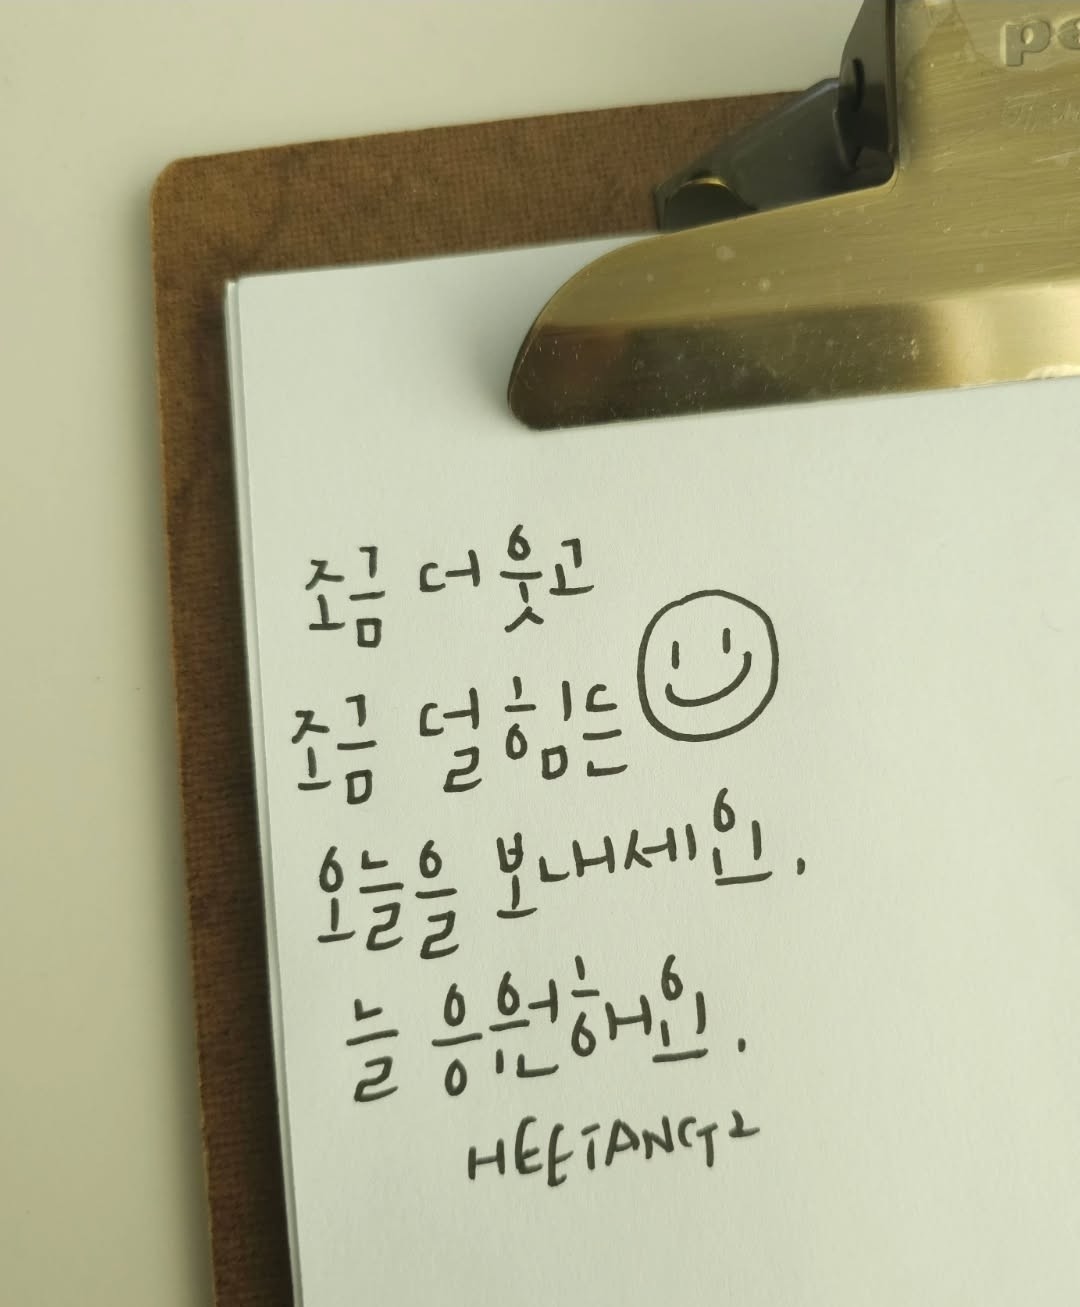 조금 더 웃고
조금 덜 힘든
오늘을 보내세요.
늘 응원해요.
HEETANG2